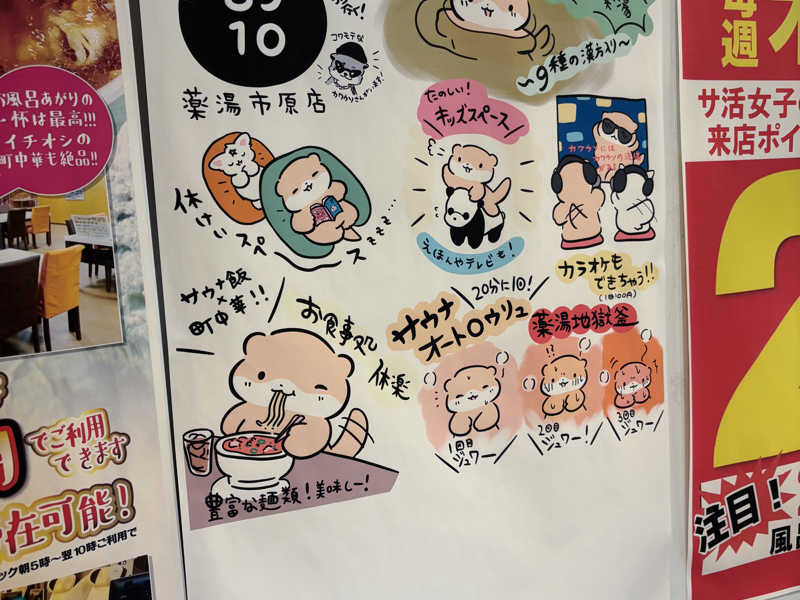 10
コワモテな
カワウソさんがいます!
薬湯市原店
薬湯
〜9種の漢方入り〜
お風呂あがりの
一杯は最高!!!
イチオシの
町中華も絶品!!
たのしい!
キッズスペース
えほんやテレビも!
カラオケも
できちゃう!!
(1曲100円)
休けいスペース
zzzz...
サウナ飯
×
町中華!!
お食事処
休楽
豊富な麺類!美味しー!
20分に1回!
サウナ
オートロウリュ
薬湯地獄釜
1回目
ジュワー
2回目
ジュワー!
3回目
ジュワー!
でご利用
できます
在可能!
朝5時〜翌10時ご利用で
毎週
サ活女子
来店ポイ
2
注目!
風